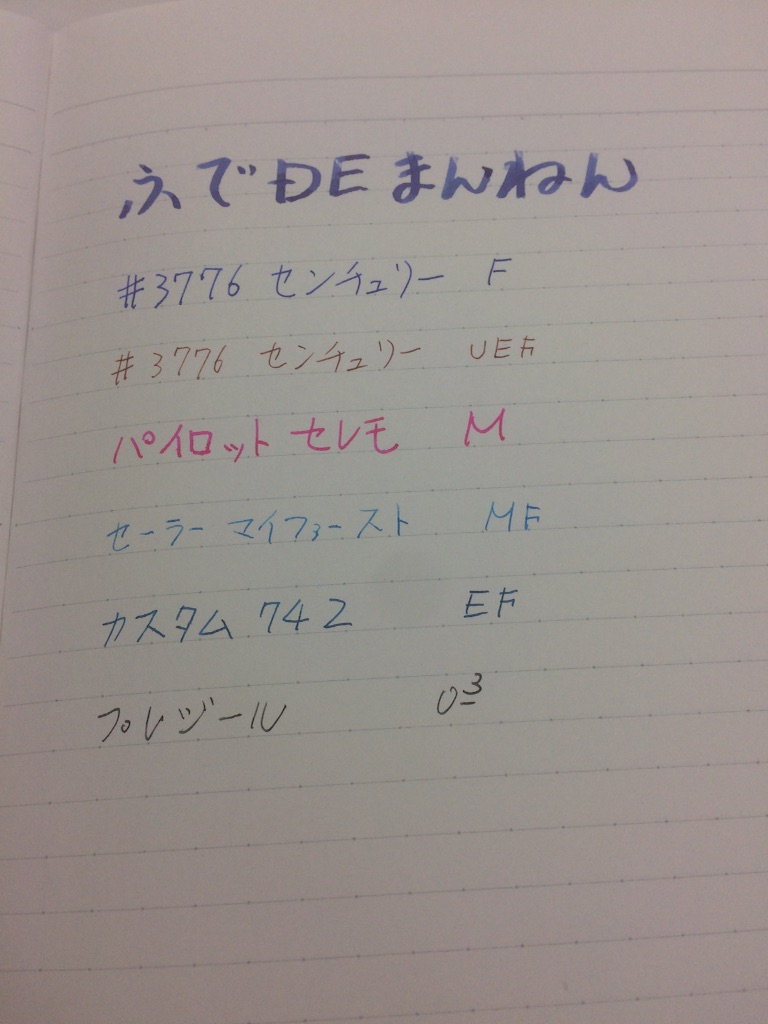 ふでDEまんねん
#3776 センチュリー F
#3776 センチュリー UEF
パイロット セレモ M
セーラー マイファースト MF
カスタム 742 EF
プレジール 03